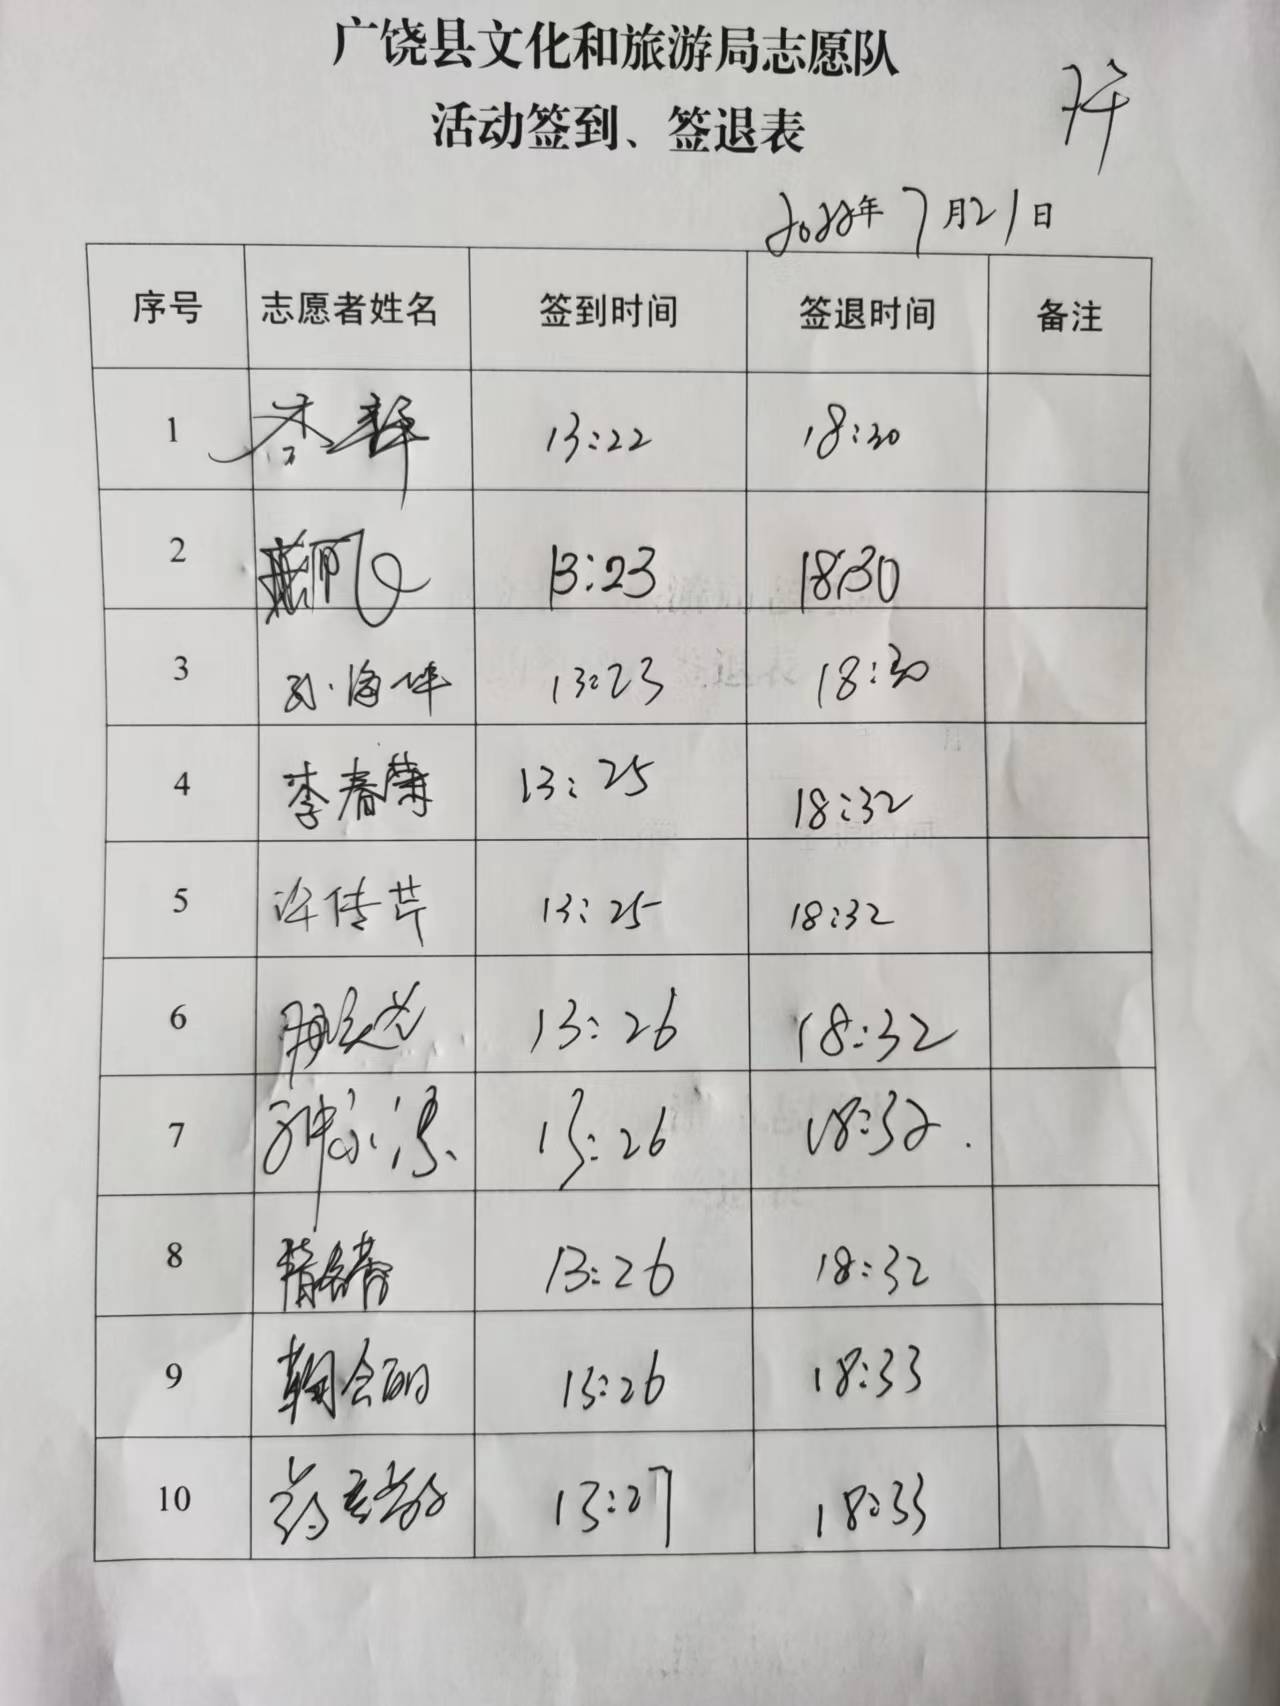 广饶县文化和旅游局志愿队
活动签到、签退表
2022年7月21日
序号 志愿者姓名 签到时间 签退时间 备注
1 13:22 18:30
2 13:23 18:30
3 13:23 18:30
4 李春荣 13:25 18:32
5 许传芹 13:25 18:32
6 13:26 18:32
7 13:26 18:32
8 13:26 18:32
9 13:26 18:33
10 13:27 18:33